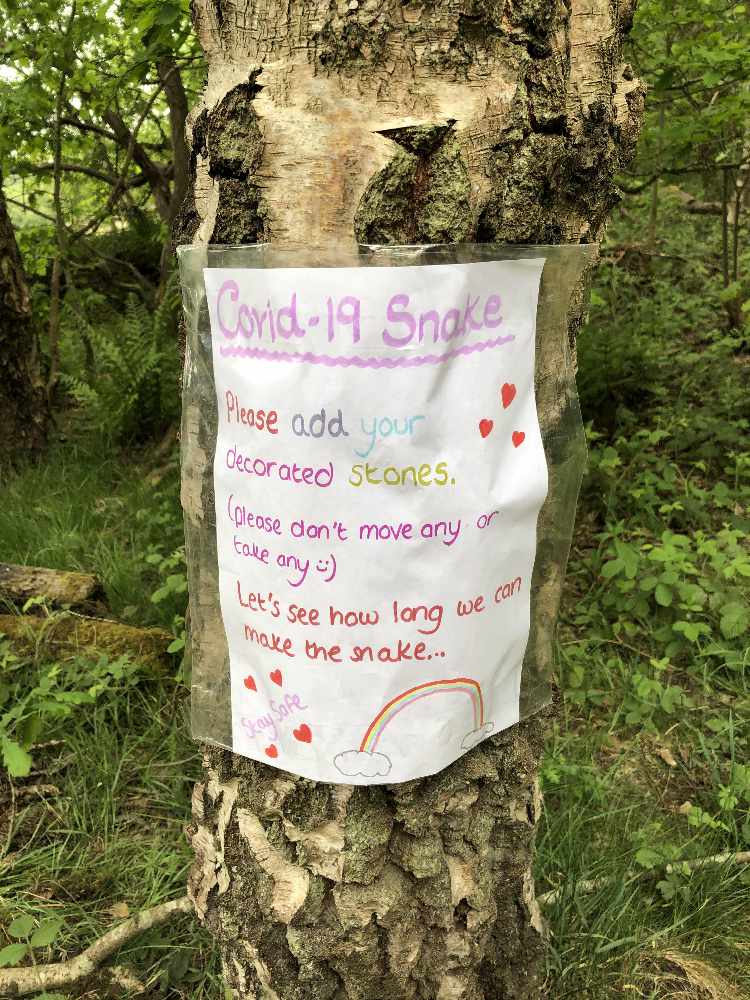 Covid-19 Snake
Please add your
decorated stones.
(please don't move any or
take any :))
Let's see how long we can
make the snake...
Stay Safe